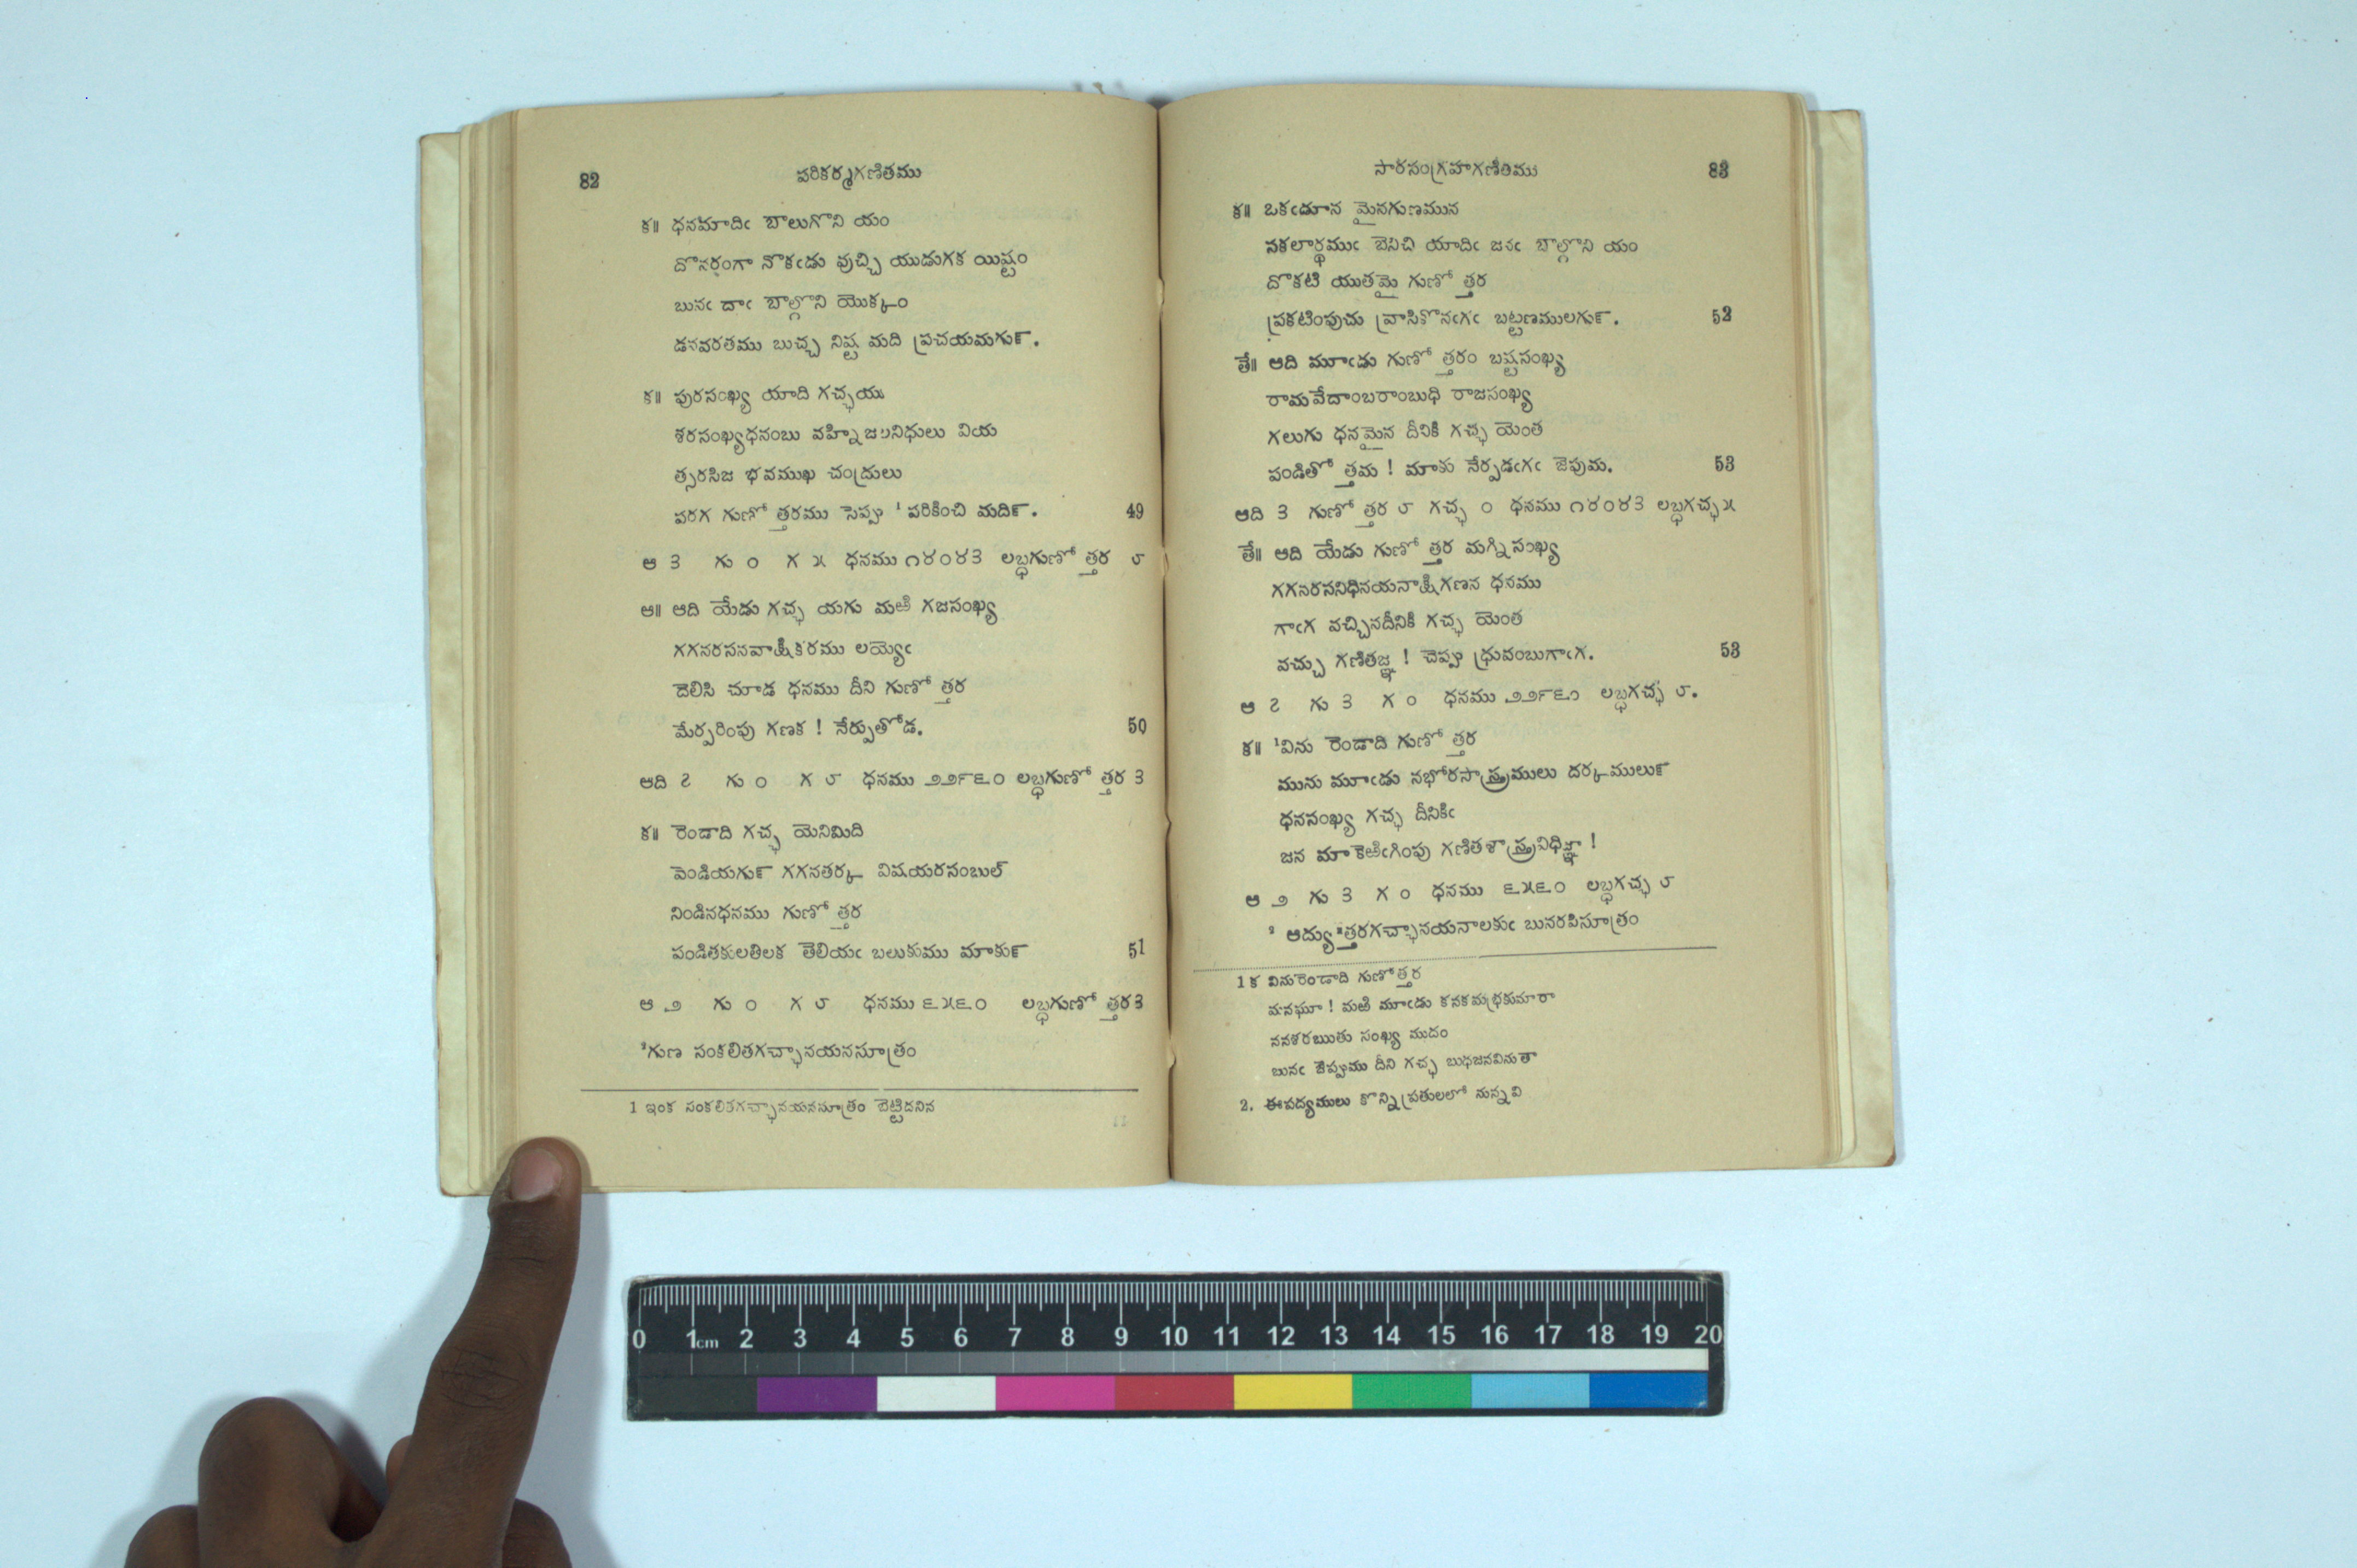 82
పరికర్మగణితము
క॥ ధనమాదిఁ బాలుగొని యం
దొనర్పంగా నొకఁడు వుచ్చి యుడుగక యిష్టం
బునఁ దాఁ బాల్గొని యొక్కం
డనవరతము బుచ్చ నిష్ట మది ప్రచయమగున్.
క॥ పురసంఖ్య యాది గచ్ఛయు
శరసంఖ్యధనంబు వహ్ని జలనిధులు వియ
త్సరసిజ భవముఖ చంద్రులు
పరగ గుణోత్తరము సెప్పు ¹పరికించి మదిన్. 49
ఆ ౩ గు ౦ గ ౫ ధనము ౧౪౦౪౩ లబ్ధగుణోత్తర ౮
ఆ॥ ఆది యేడు గచ్ఛ యగు మఱి గజసంఖ్య
గగనరసనవాక్షికరము లయ్యెఁ
దెలిసి చూడ ధనము దీని గుణోత్తర
మేర్పరింపు గణక ! నేర్పుతోడ. 50
ఆది ౭ గు ౦ గ ౮ ధనము ౨౨౯౬౦ లబ్ధగుణోత్తర ౩
క॥ రెండాది గచ్ఛ యెనిమిది
వెండియగున్ గగనతర్క విషయరసంబుల్
నిండినధనము గుణోత్తర
పండితకులతిలక తెలియఁ బలుకుము మాకున్ 51
ఆ ౨ గు ౦ గ ౮ ధనము ౬౫౬౦ లబ్ధగుణోత్తర ౩
²గుణ సంకలితగచ్ఛానయనసూత్రం
1 ఇంక సంకలితగచ్ఛానయనసూత్రం బెట్టిదనిన
సారసంగ్రహగణితము
83
క॥ ఒకఁడూన మైనగుణమున
నకలార్థముఁ బెనిచి యాదిఁ జనఁ బాల్గొని యం
దొకటి యుతమై గుణోత్తర
ప్రకటింపుచు వ్రాసికొనఁగఁ బట్టణములగున్. 52
తే॥ ఆది మూఁడు గుణోత్తరం బష్టసంఖ్య
రామవేదాంబరాంబుధి రాజసంఖ్య
గలుగు ధనమైన దీనికి గచ్ఛ యెంత
పండితోత్తమ ! మాకు నేర్పడఁగఁ జెపుమ. 53
ఆది ౩ గుణోత్తర ౮ గచ్ఛ ౦ ధనము ౧౪౦౪౩ లబ్ధగచ్ఛ ౫
తే॥ ఆది యేడు గుణోత్తర మగ్ని సంఖ్య
గగనరసనిధినయనాక్షిగణన ధనము
గాఁగ వచ్చినదీనికి గచ్ఛ యెంత
వచ్చు గణితజ్ఞ ! చెప్పు ధ్రువంబుగాఁగ. 53
ఆ ౭ గు ౩ గ ౦ ధనము ౨౨౯౬౦ లబ్ధగచ్ఛ ౮.
క॥ ¹విను రెండాది గుణోత్తర
మును మూఁడు నభోరసాస్త్రములు దర్కములున్
ధనసంఖ్య గచ్ఛ దీనికిఁ
జన మాకెఱిఁగింపు గణితశాస్త్రవిధిజ్ఞా !
ఆ ౨ గు ౩ గ ౦ ధనము ౬౫౬౦ లబ్ధగచ్ఛ ౮
² ఆద్యుత్తరగచ్ఛానయనాలకుఁ బునరపిసూత్రం
1 క వినురెండాది గుణోత్తర
మనఘా ! మఱి మూఁడు కనకమభ్రకుమారా
ననశరఋతు సంఖ్య ముదం
బునఁ జెప్పుము దీని గచ్ఛ బుధజనవినుతా
2. ఈపద్యములు కొన్నిప్రతులలో నున్నవి